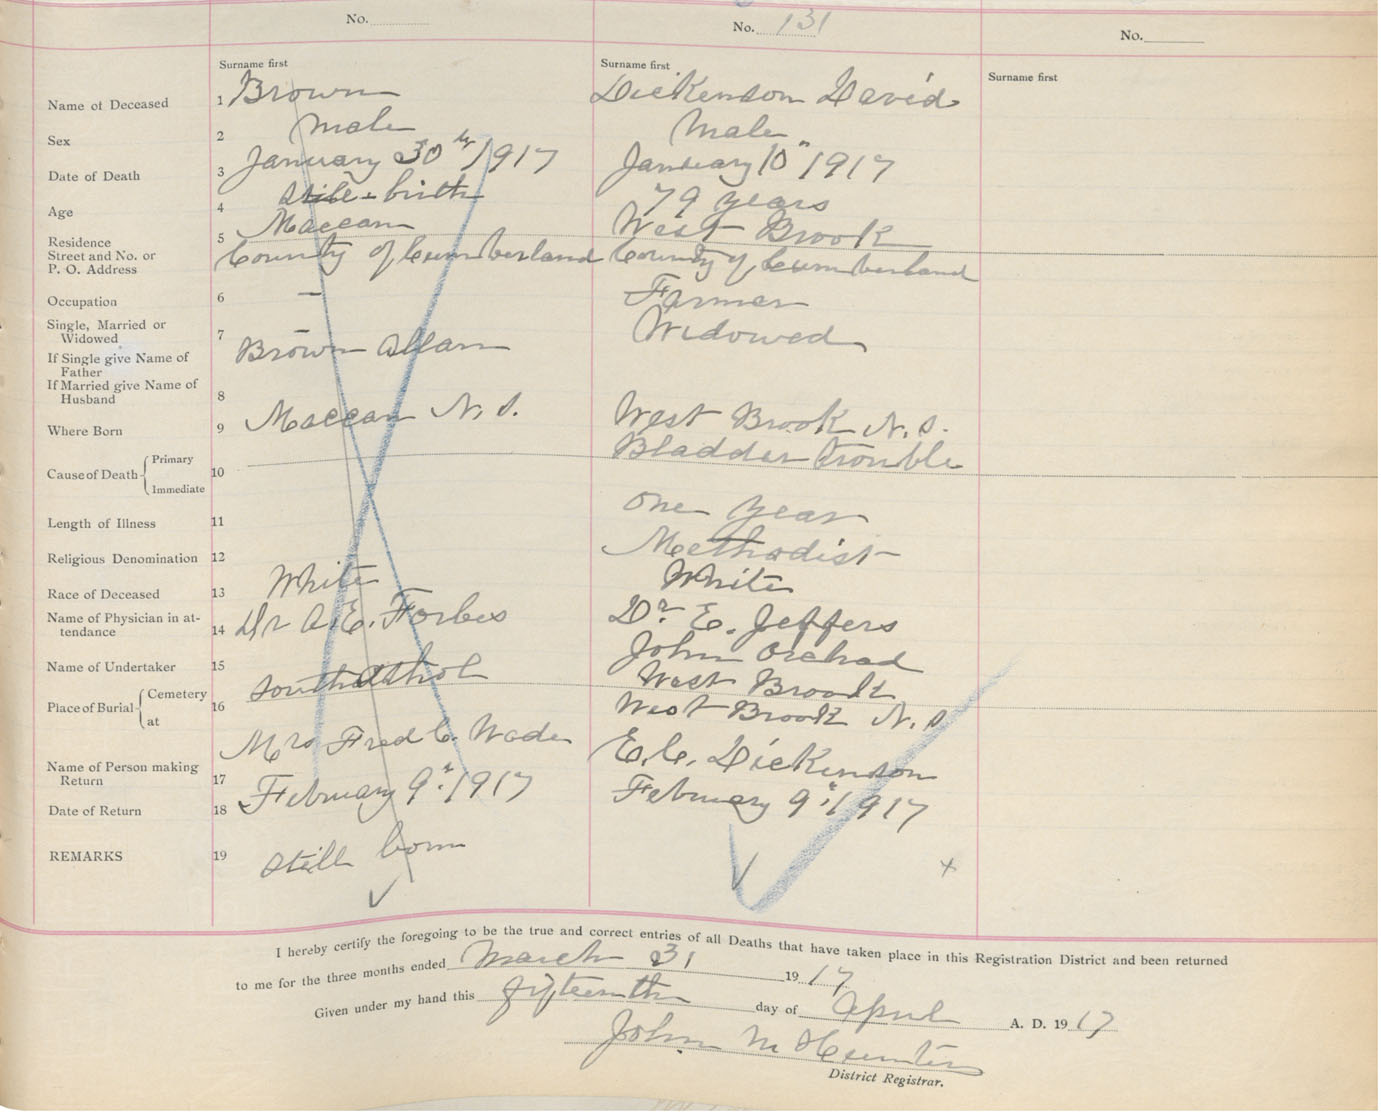 No.
No. 131
No.
Surname first
Surname first
Surname first
Name of Deceased 1 Brown Dickenson David
Sex 2 Male Male
Date of Death 3 January 30th, 1917 January 10" 1917
Age 4 Still-birth 79 years
Residence 5 Maccan West Brook
Street and No. or
P. O. Address County of Cumberland County of Cumberland
Occupation 6 – Farmer
Single, Married or
Widowed 7 – Widowed
If Single give Name of
Father Brown Allan
If Married give Name of
Husband 8
Where Born 9 Maccan N. S. West Brook N. S.
Cause of Death Primary 10 Bladder trouble
Immediate
Length of Illness 11 One Year
Religious Denomination 12 Methodist
Race of Deceased 13 White White
Name of Physician in at-
tendance 14 Dr A. E. Forbes Dr. E. Jeffers
Name of Undertaker 15 John Orchad
Place of Burial Cemetery 16 South Athol West Brook
at West Brook N. S
Name of Person making
Return 17 Mrs Fred C. Wade E. C. Dickenson
Date of Return 18 February 9" 1917 February 9" 1917
REMARKS 19 Still born
I hereby certify the foregoing to be the true and correct entries of all Deaths that have taken place in this Registration District and been returned
to me for the three months ended March 31 1917
Given under my hand this fifteenth day of April A. D. 1917
John M Hunter
District Registrar.